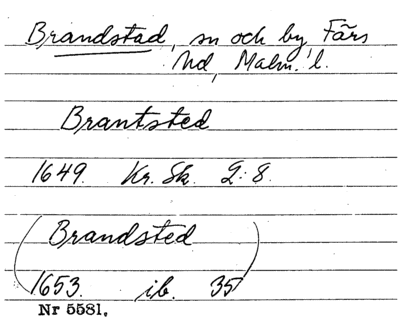 Brandstad, sn och by Färs
hd, Malm. l.
Brantsted
1649. Kr. Sk. 2:8.
(Brandsted
1653. ib. 35)
Nr 5581,